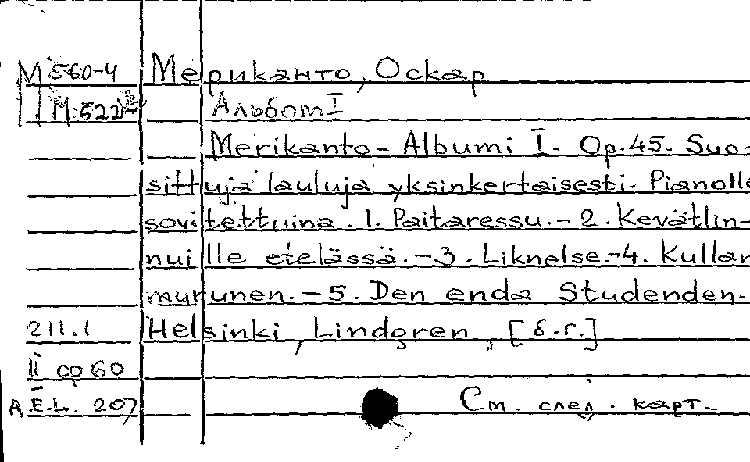 М 560-4 Мериканто, Оскар
М.522 Альбом I
Merikanto-Albumi I. Op.45. Suo-
sittuja lauluja yksinkertaisesti. Pianolle
sovitettuina. 1. Paitaressu. - 2. Kevätlin-
nuille etelässä. - 3. Liknelse. - 4. Kullan
murunen. - 5. Den enda Studenden.
211.1 Helsinki, Lindgren, [б.г.]
II со 60
A E.L. 207 См. след. карт.